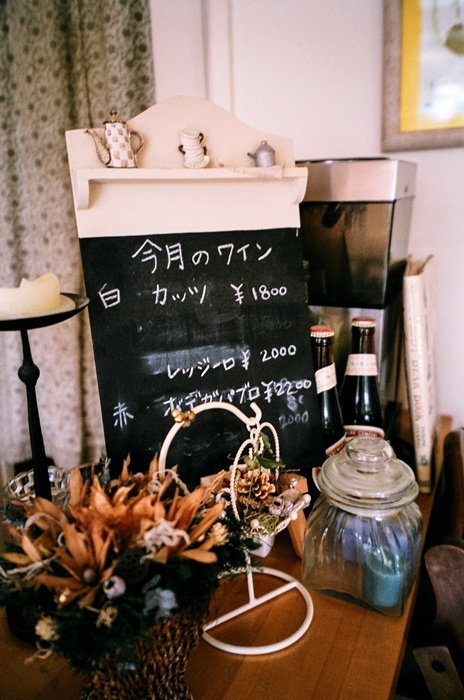 今月のワイン
白 カッツ ¥1800
レッジーロ ¥ 2000
赤 ボデガパブロ ¥2200
2000